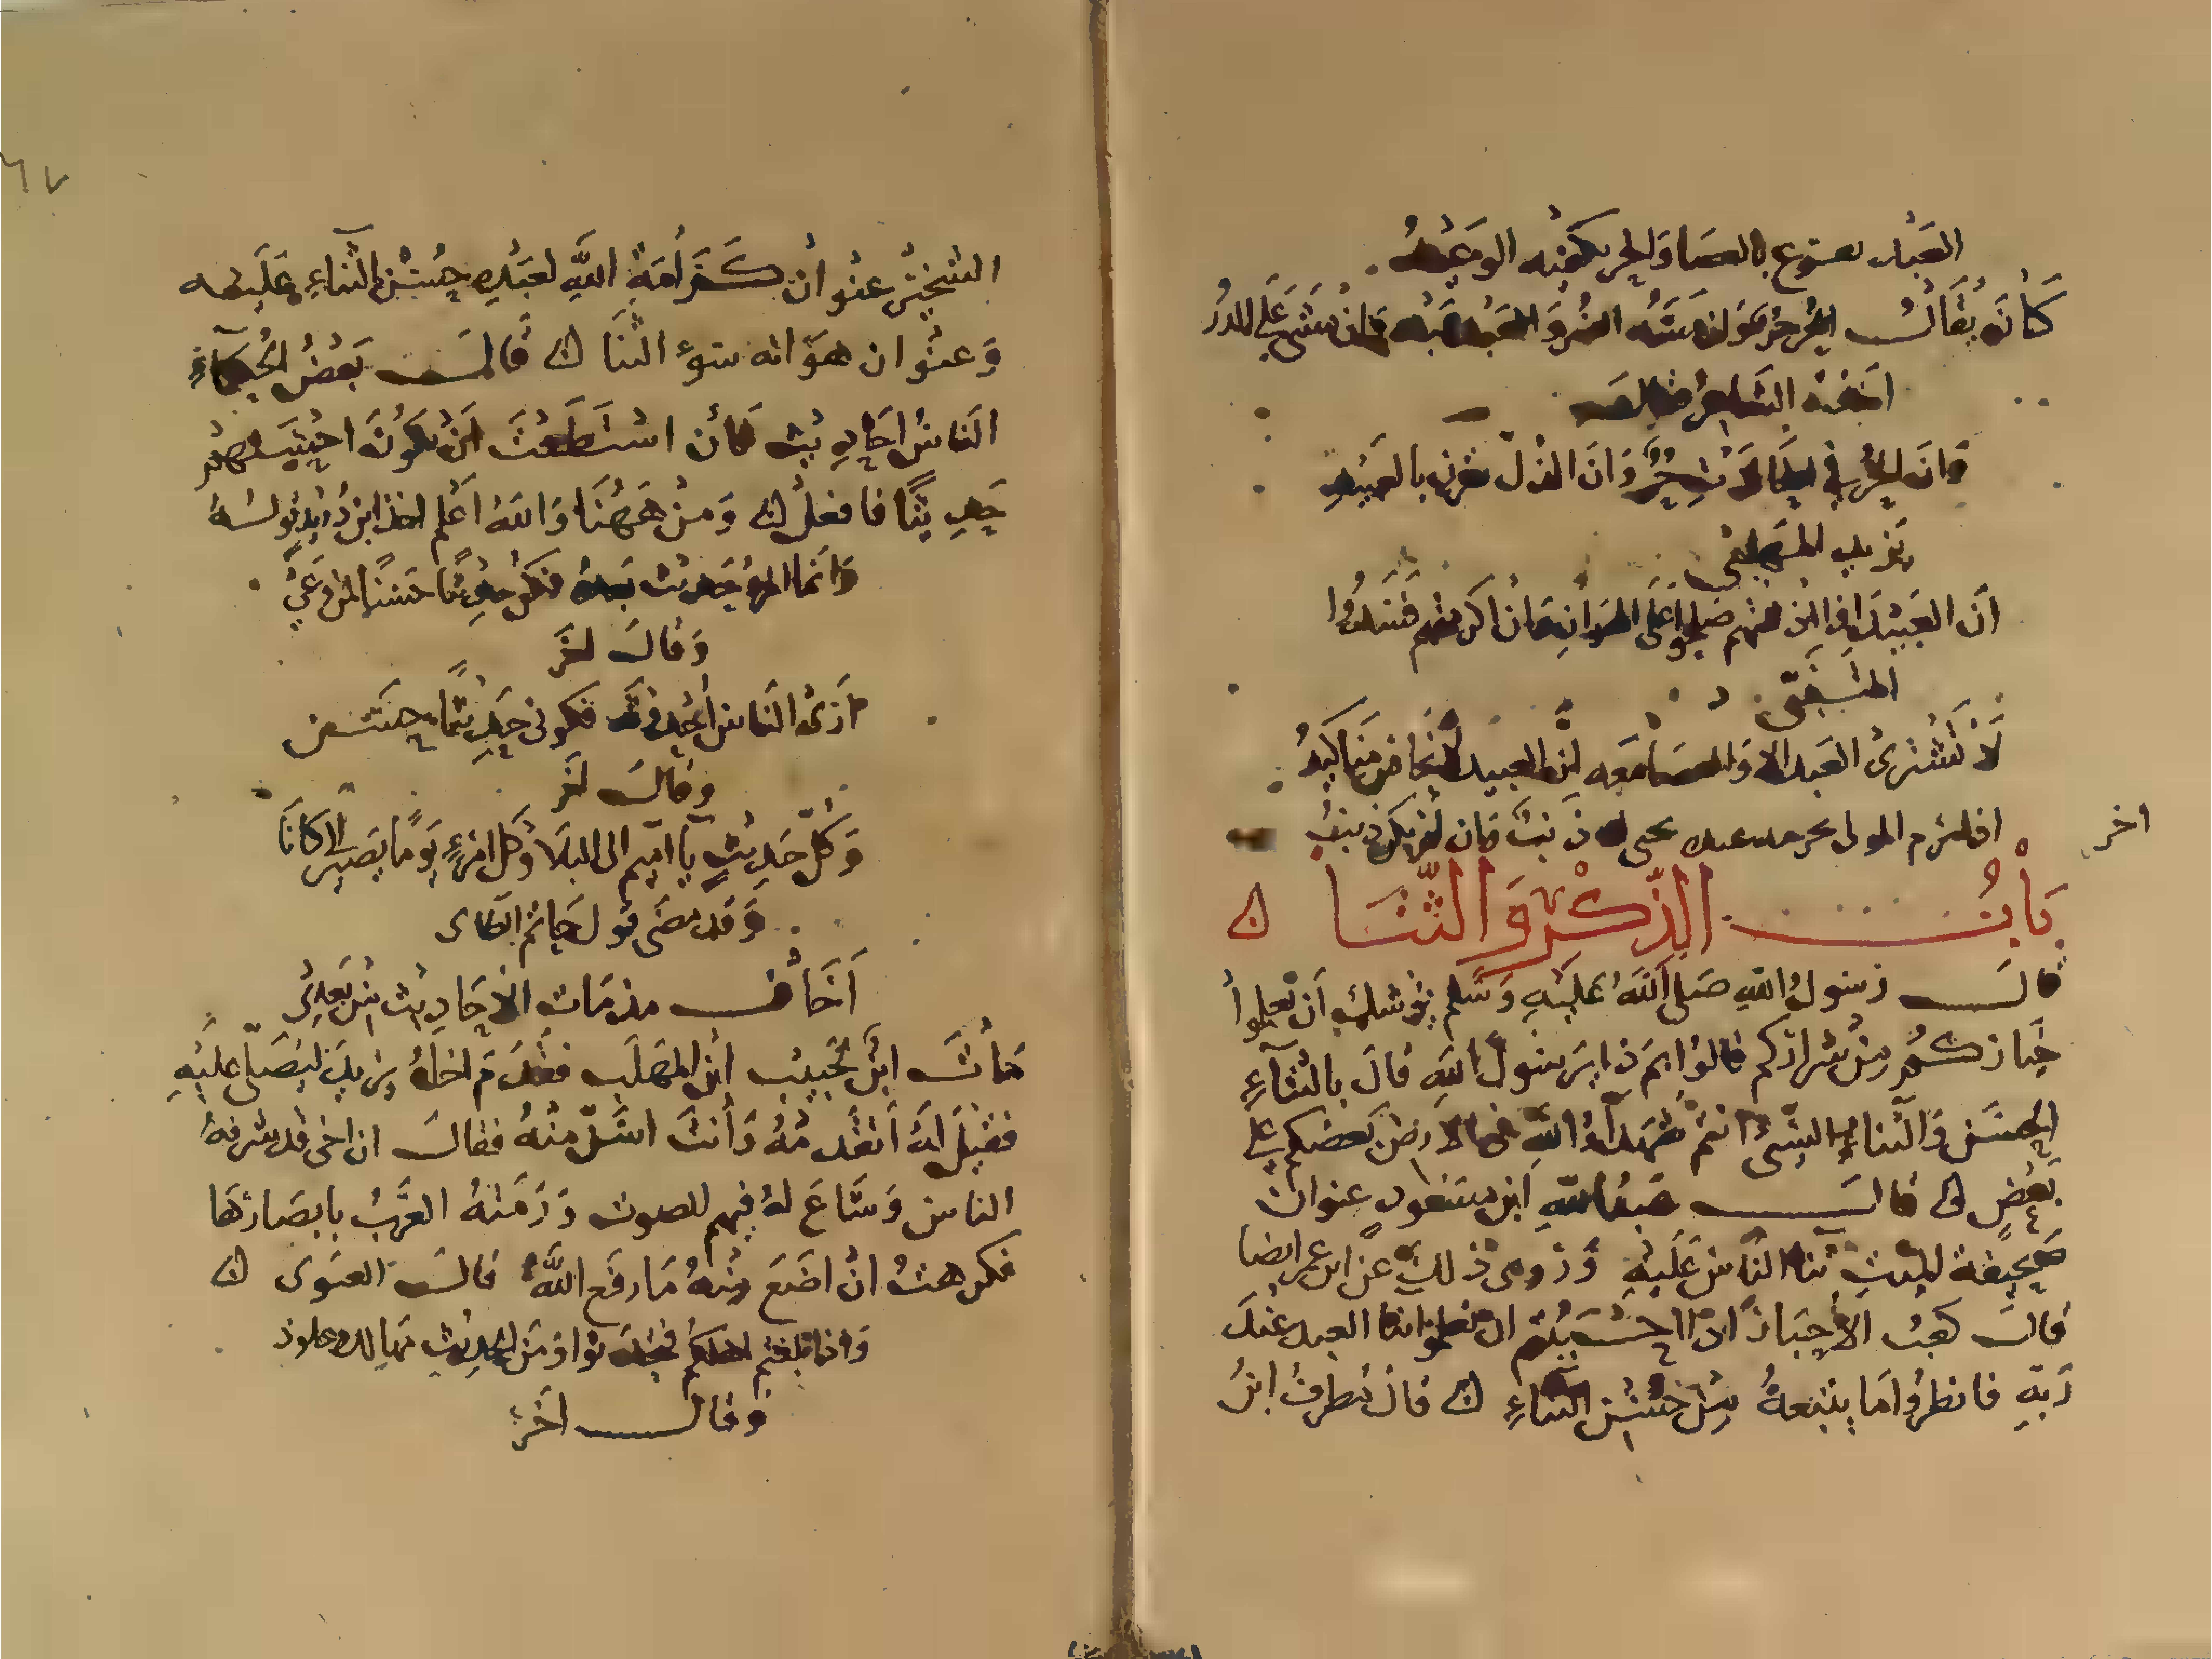 العبد يقرع بالعصا والحر يكفيه الوعيد
كانه يقال الحر حر ولو مسه الضر والعبد عبد وان مشى على الدر
اخذه الشاعر فقال
وان الحر في الحالات حر وان الذل يقرن بالعبيد
يزيد المهلبي
ان العبيد اذا اذللتهم صلحوا على الهوان وان اكرمتهم فسدوا
المتنبي
لا تشتري العبد الا والعصا معه ان العبيد لانجاس مناكيد
اخر
المولى عبده ذنب فان لم يكن ذنب
باب الذكر والثنا
قال رسول الله صلى الله عليه وسلم يوشك ان تعلموا
خياركم من شراركم قالوا بم ذا يرسول الله قال بالثناء
الحسن والثناء السيئ انتم شهداء الله في الارض بعضكم على
بعض قال عبد الله ابن مسعود عنوان
صحيفة الميت ثنا الناس عليه وروى ذلك عن ابن عمر ايضا
قال كعب الاحبار اذا احببتم ان تعلموا ما العبد عند
ربه فانظروا ما يتبعه من حسن الثناء قال مطرف ابن
٦٧
الشخير عنوان كرامة الله لعبده حسن الثناء عليه
وعنوان هوانه سوء الثنا قال بعض الحكماء
الناس احاديث فان استطعت ان تكون احسنهم
حديثا فافعل ومن ههنا والله اعلم اخذ ابن دريد قوله
وانما المرء حديث بعده فكن حديثا حسنا لمن وعى
وقال اخر
ارى الناس احدوثة فكوني حديثا حسن
وقال اخر
وكل حديث يا اميم الى البلا وكل امرئ يوما يصير الى كانا
وقد مضى قول حاتم الطاى
اخاف مذمات الاحاديث من بعدي
مات ابن حبيب ابن المهلب فقدم اخاه يزيد ليصلي عليه
فقيل له اتقدمه وانت اسن منه فقال ان اخي قد شرفه
الناس وشاع له فيهم الصوت ورمته العرب بابصارها
فكرهت ان اضع منه ما رفع الله قال الغنوى
وقال اخر